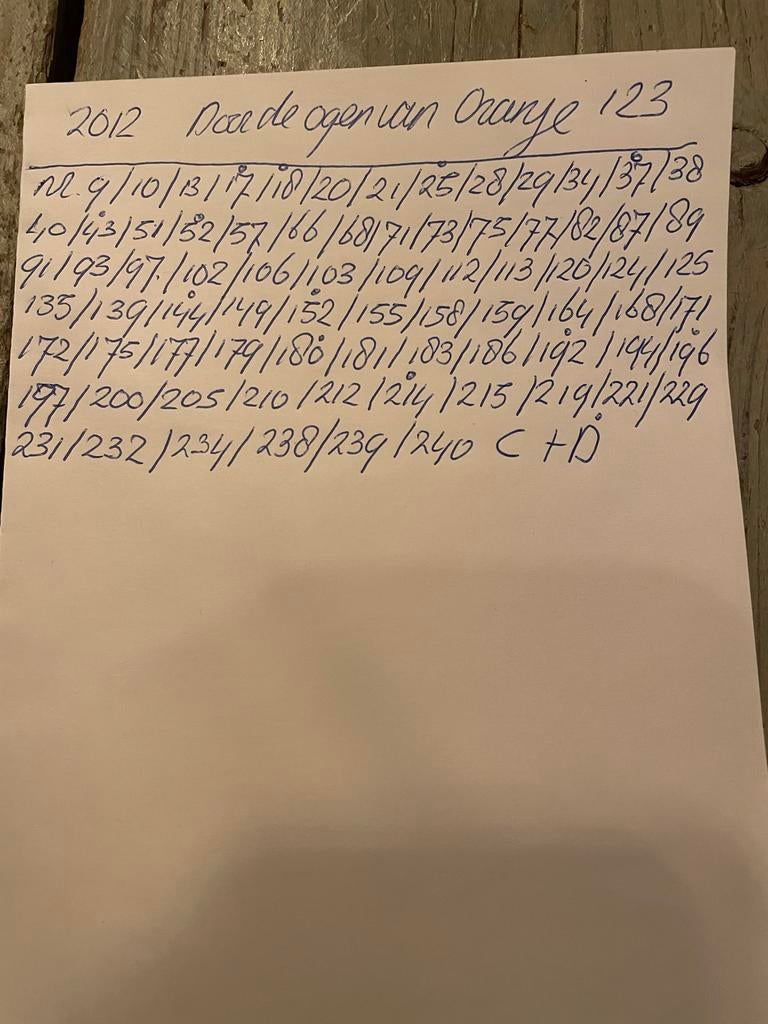 2012 Door de ogen van Oranje 123
nr. 9/10/13/17/18/20/21/25/28/29/34/37/38
40/43/51/52/57/66/68/71/73/75/77/82/87/89
91/93/97/102/106/103/109/112/113/120/124/125
135/139/144/149/152/155/158/159/164/168/171
172/175/177/179/180/181/183/186/192/194/196
197/200/205/210/212/214/215/219/221/229
231/232/234/238/239/240 C + D